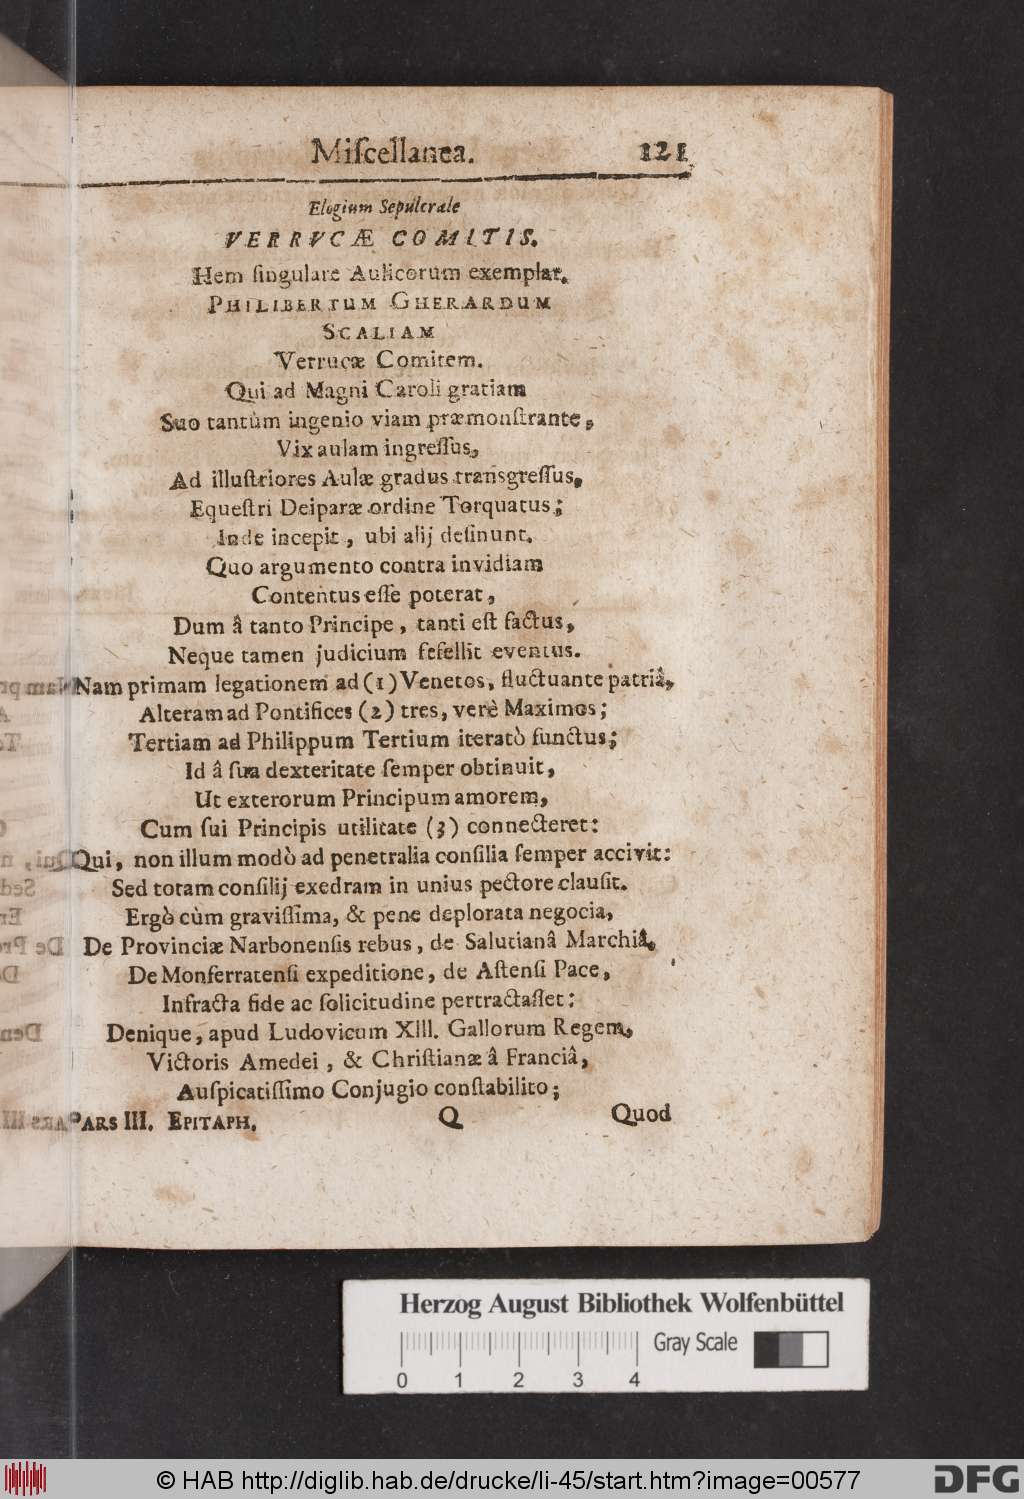 Miſcellanea. 121
Elogium Sepulcrale
VERRVCÆ COMITIS.
Hem ſingulare Aulicorum exemplar.
PHILIBERTUM GHERARDUM
SCALIAM
Verrucæ Comitem.
Qui ad Magni Caroli gratiam
Suo tantùm ingenio viam præmonſtrante,
Vix aulam ingreſſus,
Ad illuſtriores Aulæ gradus transgreſſus,
Equeſtri Deiparæ ordine Torquatus;
Inde incepit, ubi alij deſinunt.
Quo argumento contra invidiam
Contentus eſſe poterat,
Dum â tanto Principe, tanti eſt factus,
Neque tamen judicium fefellit eventus.
Nam primam legationem ad (1) Venetos, fluctuante patriâ,
Alteram ad Pontifices (2) tres, verè Maximos;
Tertiam ad Philippum Tertium iteratò functus;
Id â ſua dexteritate ſemper obtinuit,
Ut exterorum Principum amorem,
Cum ſui Principis utilitate (3) connecteret:
Qui, non illum modò ad penetralia conſilia ſemper accivit:
Sed totam conſilij exedram in unius pectore clauſit.
Ergò cùm graviſſima, & pene deplorata negocia,
De Provinciæ Narbonenſis rebus, de Salutianâ Marchiâ,
De Monferratenſi expeditione, de Aſtenſi Pace,
Infracta fide ac ſolicitudine pertractaſſet:
Denique, apud Ludovicum XIII. Gallorum Regem,
Victoris Amedei, & Chriſtianæ â Franciâ,
Auſpicatiſſimo Conjugio conſtabilito;
PARS III. EPITAPH. Q Quod
Herzog August Bibliothek Wolfenbüttel
Gray Scale
0 1 2 3 4
© HAB http://diglib.hab.de/drucke/li-45/start.htm?image=00577
DFG